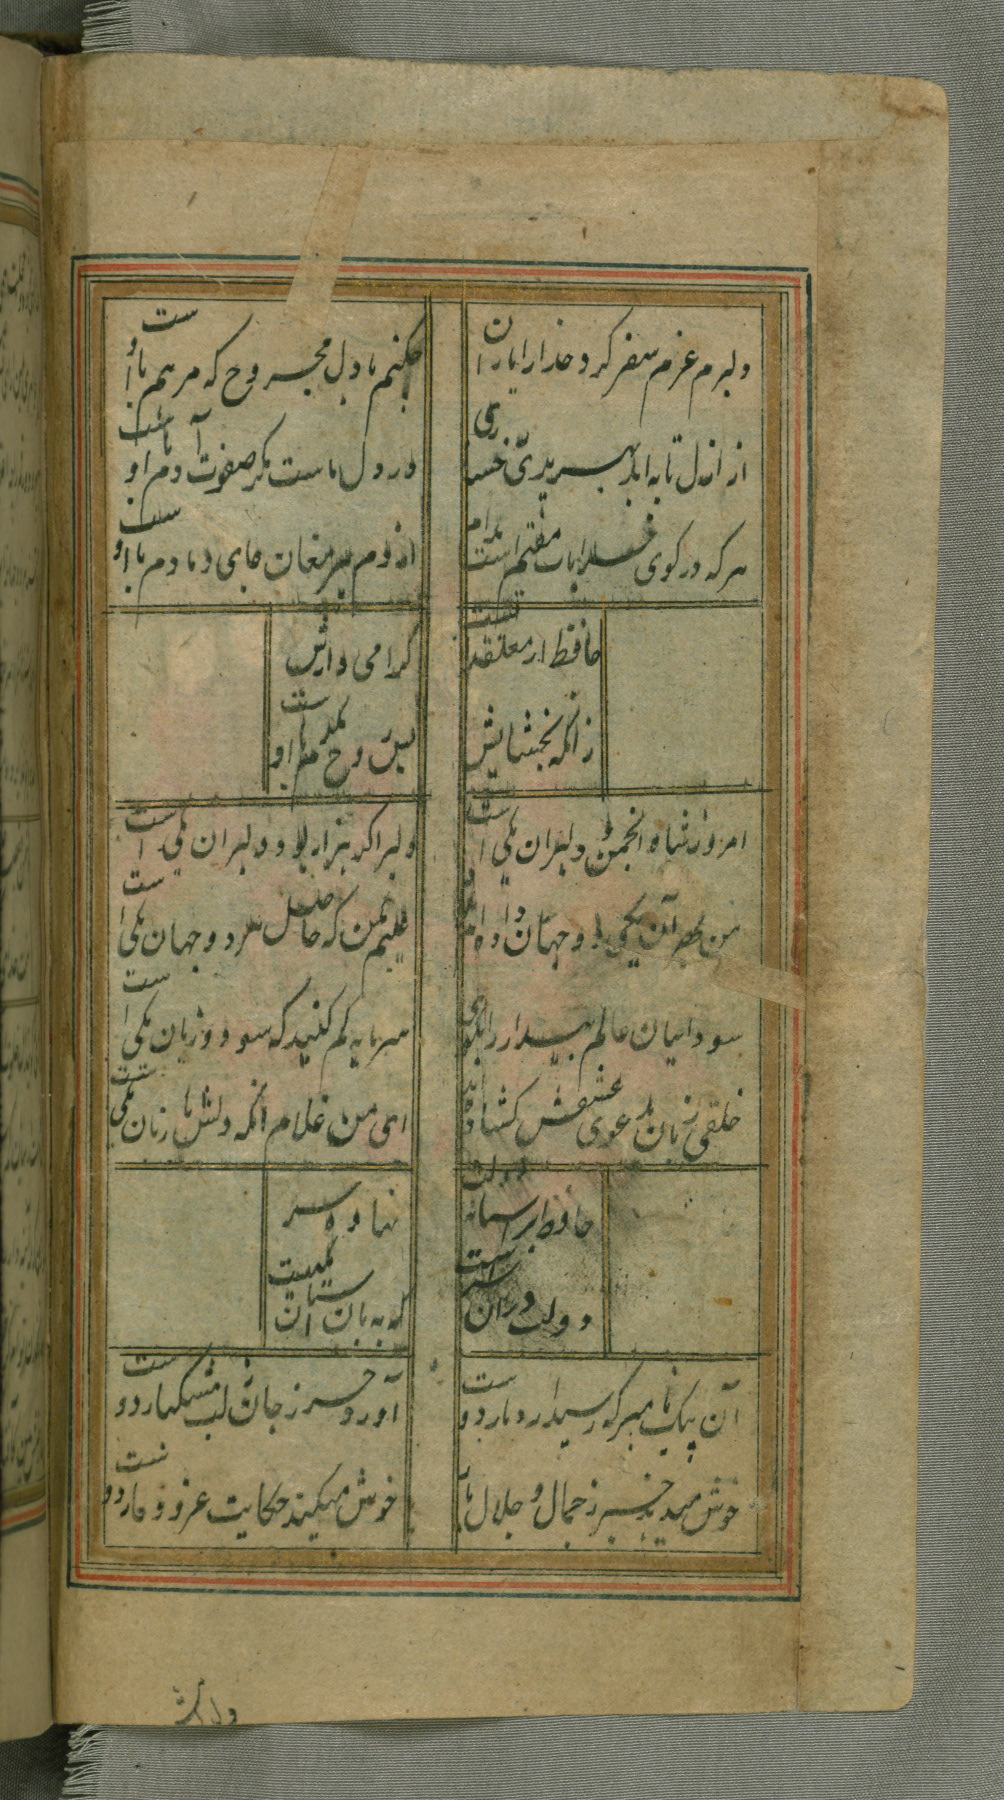 دلبرم عزم سفر کرد خدا را یاران
چکنم با دل مجروح که مرهم با اوست
هر که در کوی خرابات مقیم است مدام
از دم پیر مغان جای دمادم با اوست
حافظ ار معتقد است
گرامی دارش
زانکه بخشایش
بس روح مکرم با اوست
امروز شاه انجمن دلبران یکی است
دلبر اگر هزار بود دلبران یکی است
من بهر آن یکی دو جهان داده‌ام
که حاصل هر دو جهان یکی است
سوداییان عالم پندار را بگوی
سرمایه کم کنید که سود و زیان یکی است
خلقی زبان بدعوی عشقش کشاده‌اند
ای من غلام آنکه دلش با زبان یکی است
حافظ بر آستانه دولت
نهاده سر
دولت در آن سر است
که با آن آستان یکیست
آن پیک نامبر که رسید از دیار دوست
آورد حرز جان ز خط مشکبار دوست
خوش میدهد خبر ز جمال و جلال یار
خوش میکند حکایت عز و وقار دوست